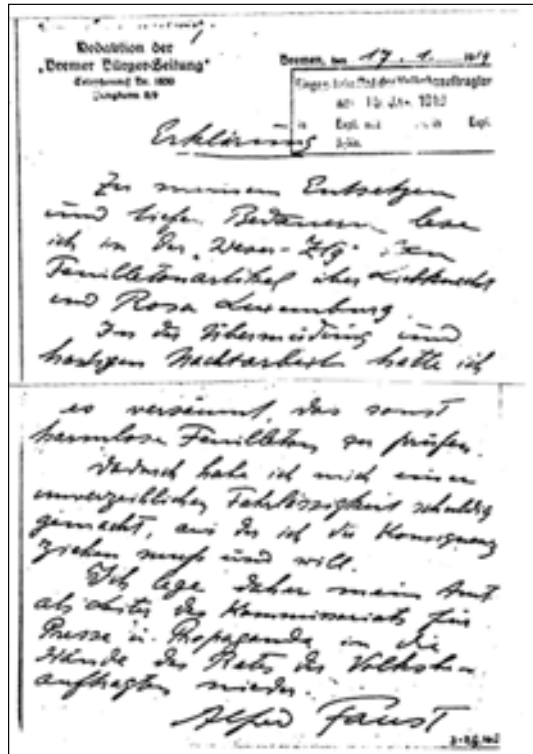 Redaktion der
„Bremer Bürger-Zeitung“
Bremen, den 17. 1. 1919
Erklärung
Zu meinem Entsetzen
und tiefen Bedauern lese
ich in der „Weser-Ztg“ den
Feuilletonartikel über Liebknecht
und Rosa Luxemburg.
In der Übermüdung und
hastigen Nachtarbeit hatte ich
es versäumt, das sonst
harmlose Feuilleton zu prüfen.
Dadurch habe ich mich einer
unverzeihlichen Fahrlässigkeit schuldig
gemacht, aus der ich die Konsequenz
ziehen muss und will.
Ich lege daher mein Amt
als Leiter des Kommissariats für
Presse u. Propaganda in die
Hände des Rates der Volksbe-
auftragten nieder.
Alfred Faust